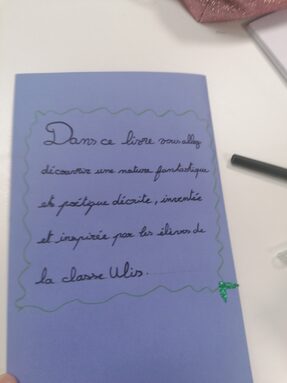 Dans ce livre vous allez
découvrir une nature fantastique
et poétique décrite, inventée
et inspirée par les élèves de
la classe Ulis.